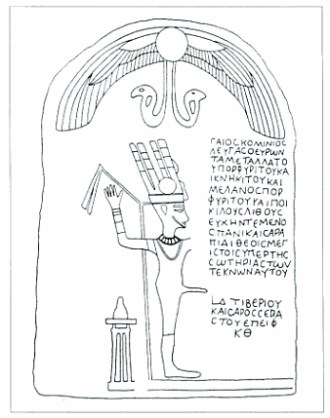 ΓΑΙΟΣΚΟΜΙΝΙΟΣ
ΛΕΥΓΑΣΟΕΥΡΩΝ
ΤΑΜΕΤΑΛΛΑΤΟ
ΥΠΟΡΦΥΡΙΤΟΥΚΑ
ΙΚΝΗΚΙΤΟΥΚΑΙ
ΜΕΛΑΝΟΣΠΟΡ
ΦΥΡΙΤΟΥΚΑΙΠΟΙ
ΚΙΛΟΥΣΛΙΘΟΥΣ
ΕΥΧΗΝΤΕΜΕΝΟ
ΣΠΑΝΙΚΑΙΣΑΡΑ
ΠΙΔΙΘΕΟΙΣΜΕΓ
ΙΣΤΟΙΣΥΠΕΡΤΗΣ
ΣΩΤΗΡΙΑΣΤΩΝ
ΤΕΚΝΩΝΑΥΤΟΥ
LΔ ΤΙΒΕΡΙΟΥ
ΚΑΙΣΑΡΟΣΣΕΒΑ
ΣΤΟΥΕΠΕΙΦ
ΚΘ